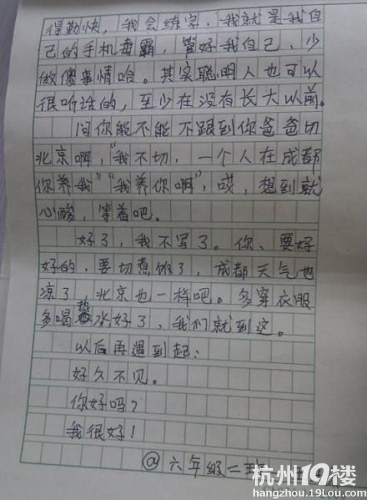 得勤快，我会练字，我就是我自
己的手机毒霸，管好我自己、少
做傻事情哈。其实聪明人也可以
很听话的，至少在没有长大以前。
问你能不能不跟到你爸爸切
北京啊，“我不切，一个人在成都
你养我”“我养你啊”，哎，想到就
心酸，等着吧。
好了，我不写了。你、要好
好的，要切煮饭了，成都天气也
凉了，北京也一样吧。多穿衣服
多喝热水好了，我们就到这。
以后再遇到起：
好久不见。
你好吗？
我很好！
@六年级二班
杭州19楼
hangzhou.19Lou.com